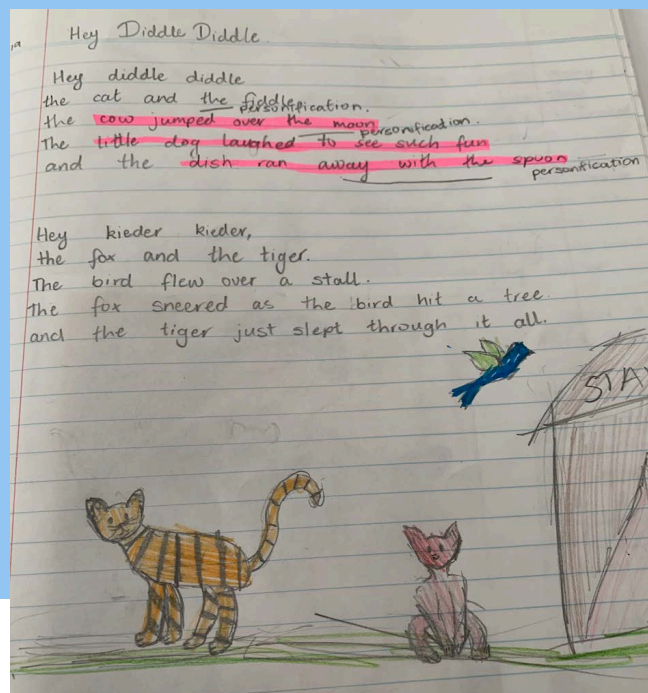 Hey Diddle Diddle.
Hey diddle diddle
the cat and the fiddle
personification.
the cow jumped over the moon
personification.
The little dog laughed to see such fun
and the dish ran away with the spoon
personification
Hey kieder kieder,
the fox and the tiger.
The bird flew over a stall.
The fox sneered as the bird hit a tree.
and the tiger just slept through it all.
STA